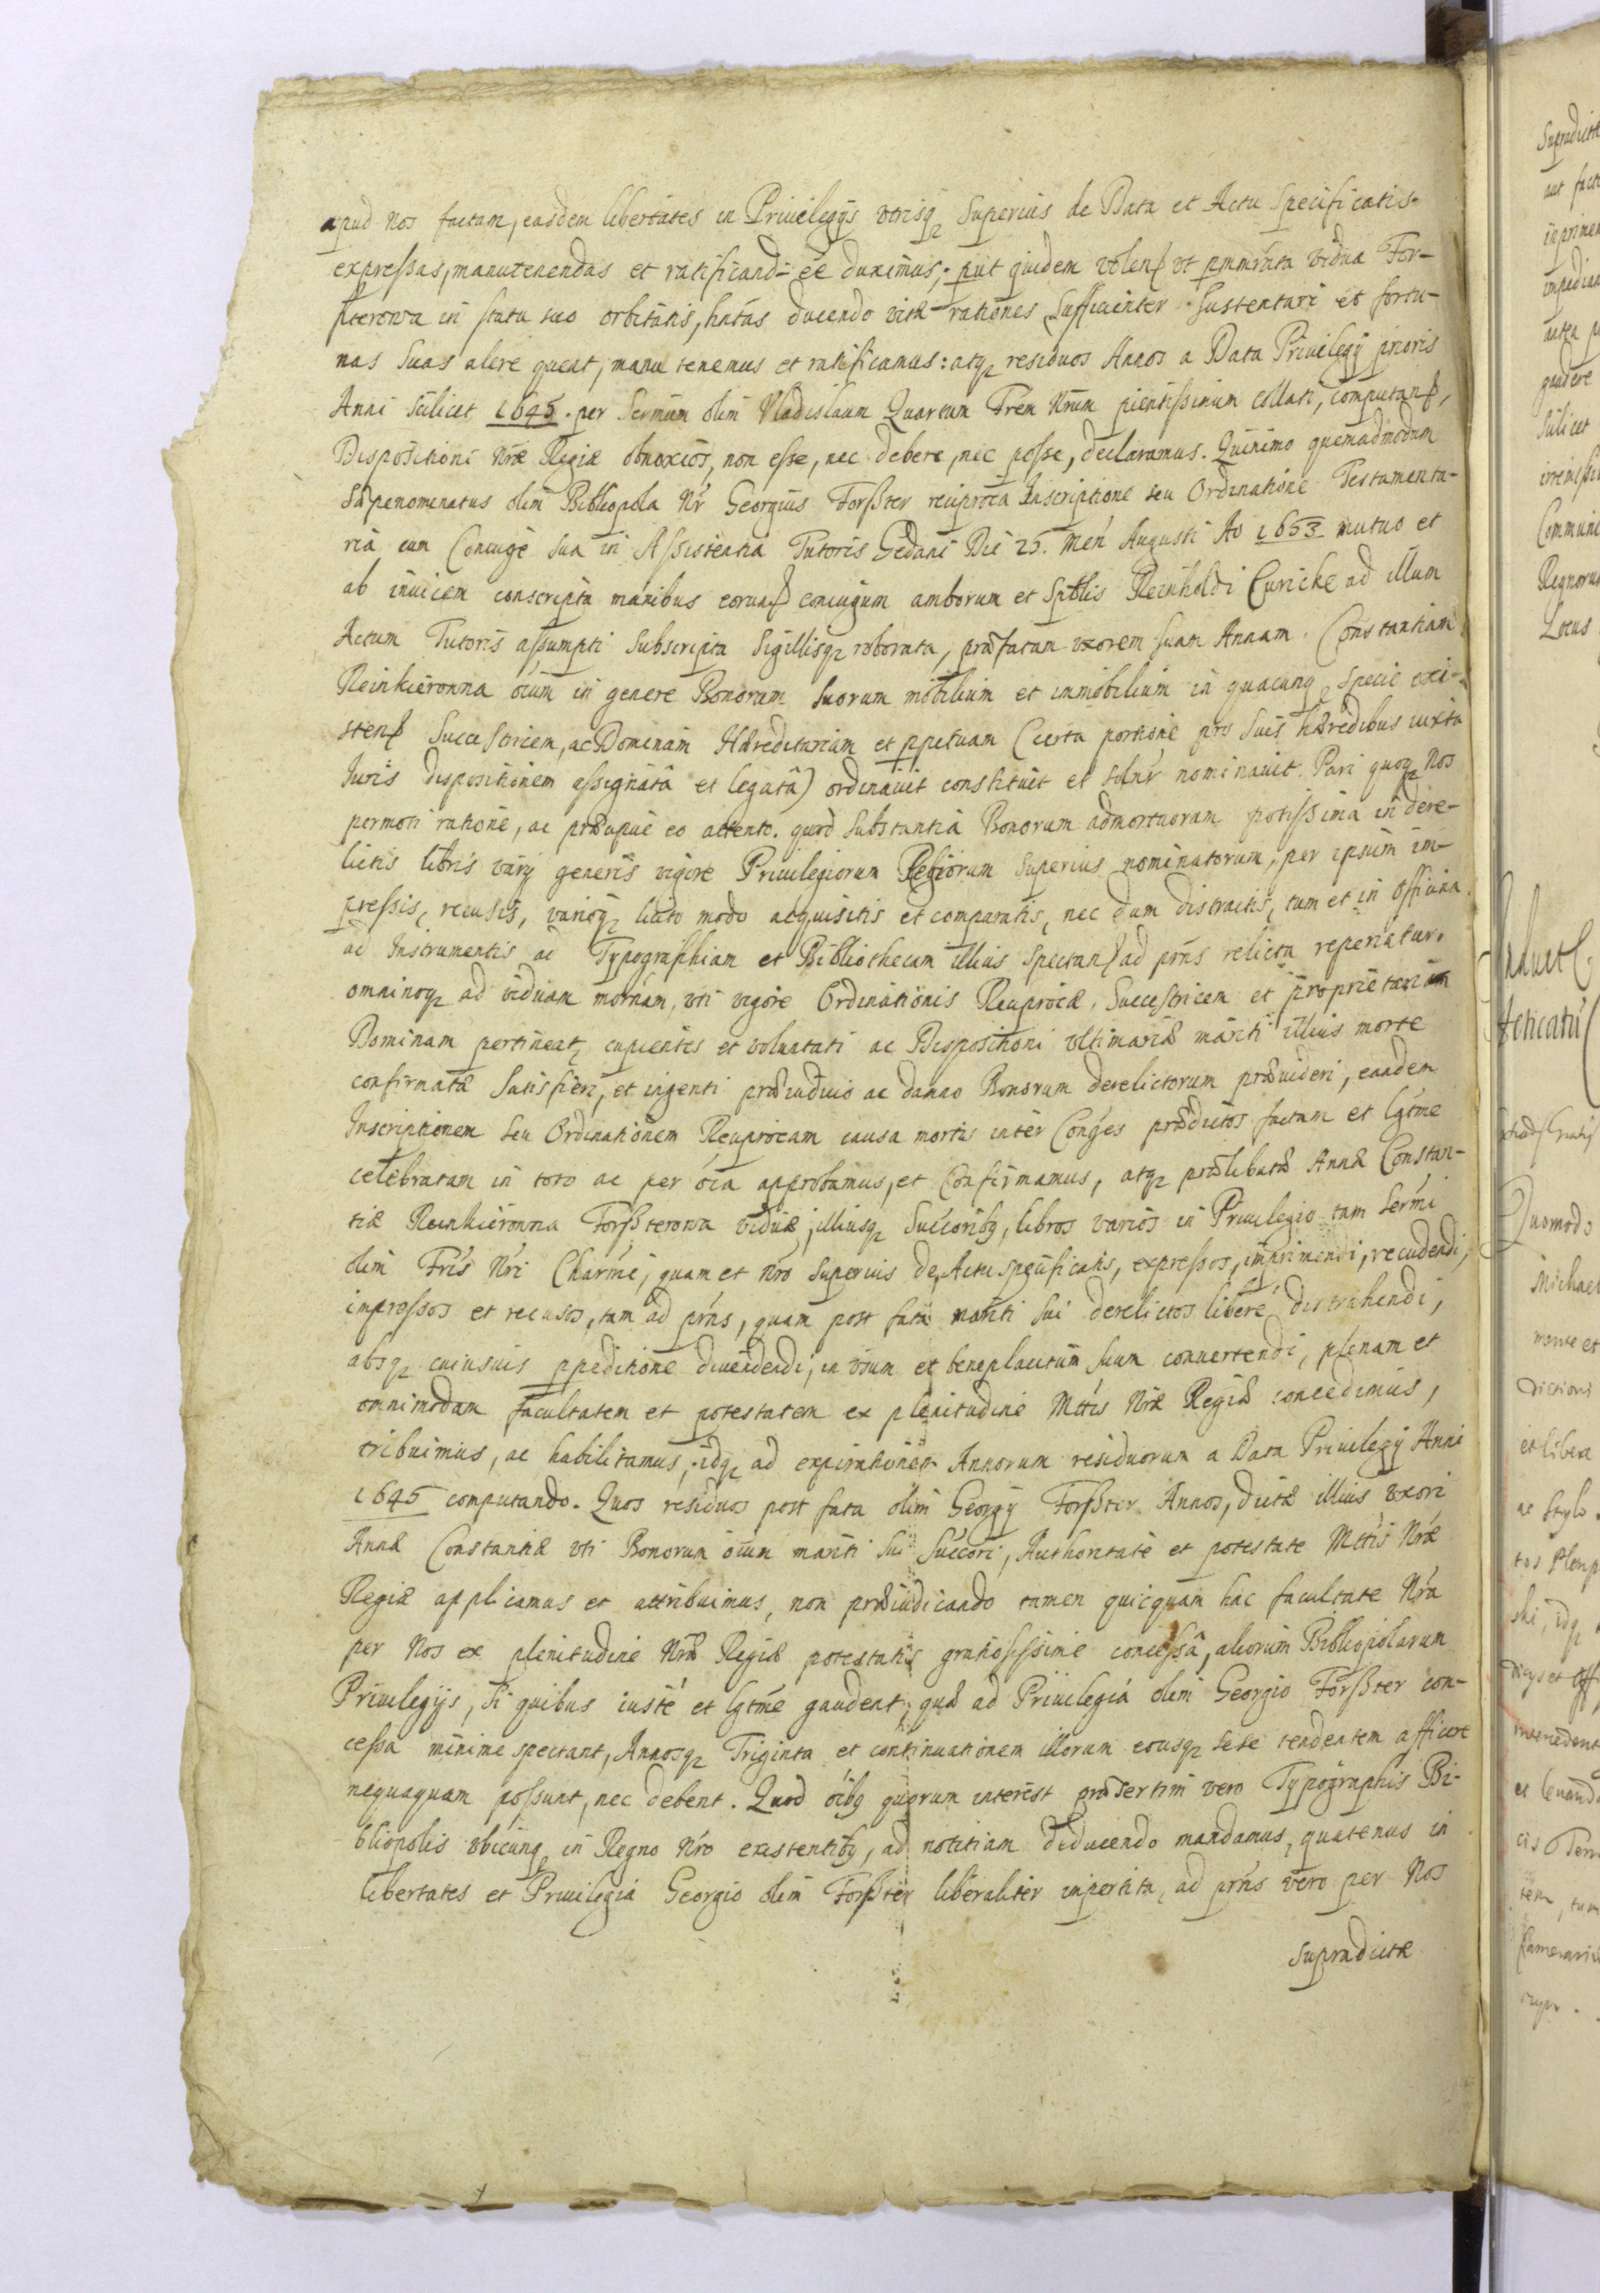 apud nos factam, easdem libertates in Privilegijs vtrisq; Superius de Data et Actu Specificatis
expressas, manutenendas et ratificand= eē duximus; put quidem volen~ vt pmmrāta vidua For-
sterowa in statu suo orbitatis, hatās ducendo vitæ rationes Sufficienter Sustentari et fortu-
nas Suas alere queat, manu tenemus et ratificamus: atq; residuos Annos a Data Privilegij prioris
Anni Scilicet 1645. per Sermum olim Vladislaum Quartum Frem Nrum pientissimum collati, computan~,
Dispositioni Nræ Regiæ obnoxios, non esse, nec debere, nec posse, declaramus. Quinimo quemadmodum
Sæpenomenatus olim Bibliopola Nr Georgius Forßter reciproca Inscriptione seu Ordinatione Testamenta-
ria cum Coniuge Sua in Assistentia Tutoris Gedani Die 25. Men Augusti Ao 1653 mutuo et
ab inuicem conscripta manibus eorun~ coniugum amborum et Spltis Reinholdi Curicke ad illum
Actum Tutoris assumpti Subscripta Sigillisq; roborata, præfatam vxorem suam Annam Constantiam
Reinkieronna oium in genere Bonorum Suorum mobilium et immobilium in quacunq; specie exi-
sten~ Succestricem, ac Dominam Hæreditariam et ppetuam (certa portione pro Suis hæredibus iuxta
Iuris dispositionem assignatâ et legatâ) ordinavit constituit et nominavit. Pari quoq; Nos
permoti ratione, ac præcipue eo attento. quod Substantia Bonorum admortuorum potissima in dere-
lictis libris varij generis vigore Privilegiorum Regiorum Superius nominatorum, per ipsum im-
pressis, recusis, varioq; licito modo acquisitis et comparatis, nec dum distractis, tum et in Officina
ac Instrumentis ac Typographiam et Bibliothecam illius Spectan~ ad prns relicta reperiatur.
omninoq; ad viduam mornam, vti vigore Ordinationis Reciprocæ, Succestricem et proprietariam
Dominam pertineat, cupientes et voluntati ac Dispositioni vltimariæ mariti illius morte
confirmatæ Satisfieri, et ingenti præiudicio ac damno Bonorum derelictorum prævideri, eandem
Inscriptionem Seu Ordinationem Reciprocam causa mortis inter Conges prædictos factam et lgtme
celebratam in toto ac per oīa approbamus, et Confirmamus, atq; prælibatæ Annæ Constan-
tiæ Reinkieronna Forßterowa viduæ, illiusq; Succoribq, libros varios in Privilegio tam Sermi
olim Fris Nri Charmi, quam et Nro Superius de Actu specificatis, expressos, imprimendi, recudendi,
impressos et recusos, tam ad prns, quam post fata mariti Sui derelictos libere distrahendi,
absq; cuiusuis ppeditione diuendendi, in vsum et beneplacitum suum conuertendi, plenam et
omnimodam facultatem et potestatem ex plenitudine Mttis Nræ Regiæ concedimus,
tribuimus, ac habilitamus, idq; ad expirationem Annorum residuorum a Data Privilegij Anni
1645 computando. Quos residuos post fata olim Georgij Forßter Annos, dictæ illius vxori
Annæ Constantiæ vti Bonorum oium mariti Sui Succori, Authoritate et potestate Mttis Nræ
Regiæ applicamus et attribuimus, non præiudicando tamen quicquam hac facultate Nrâ
per Nos ex plenitudine Nræ Regiæ potestatis gratiosissime concessâ, aliorum Bibliopolarum
Privilegijs, Si quibus iustè et lgtme gaudent, quæ ad Privilegia olim Georgio Forßter con-
cessa minime spectant, Annosq; Triginta et continuationem illorum eousq; sese tendentem afficere
nequaquam possunt, nec debent. Quod oībq quorum interest præsertim vero Typographis Bi-
bliopolis vbicunq; in Regno Nro existentibq, ad notitiam deducendo mandamus, quatenus in
libertates et Privilegia Georgio olim Forßter liberaliter impertita, ad prns vero per Nos
Supradictæ